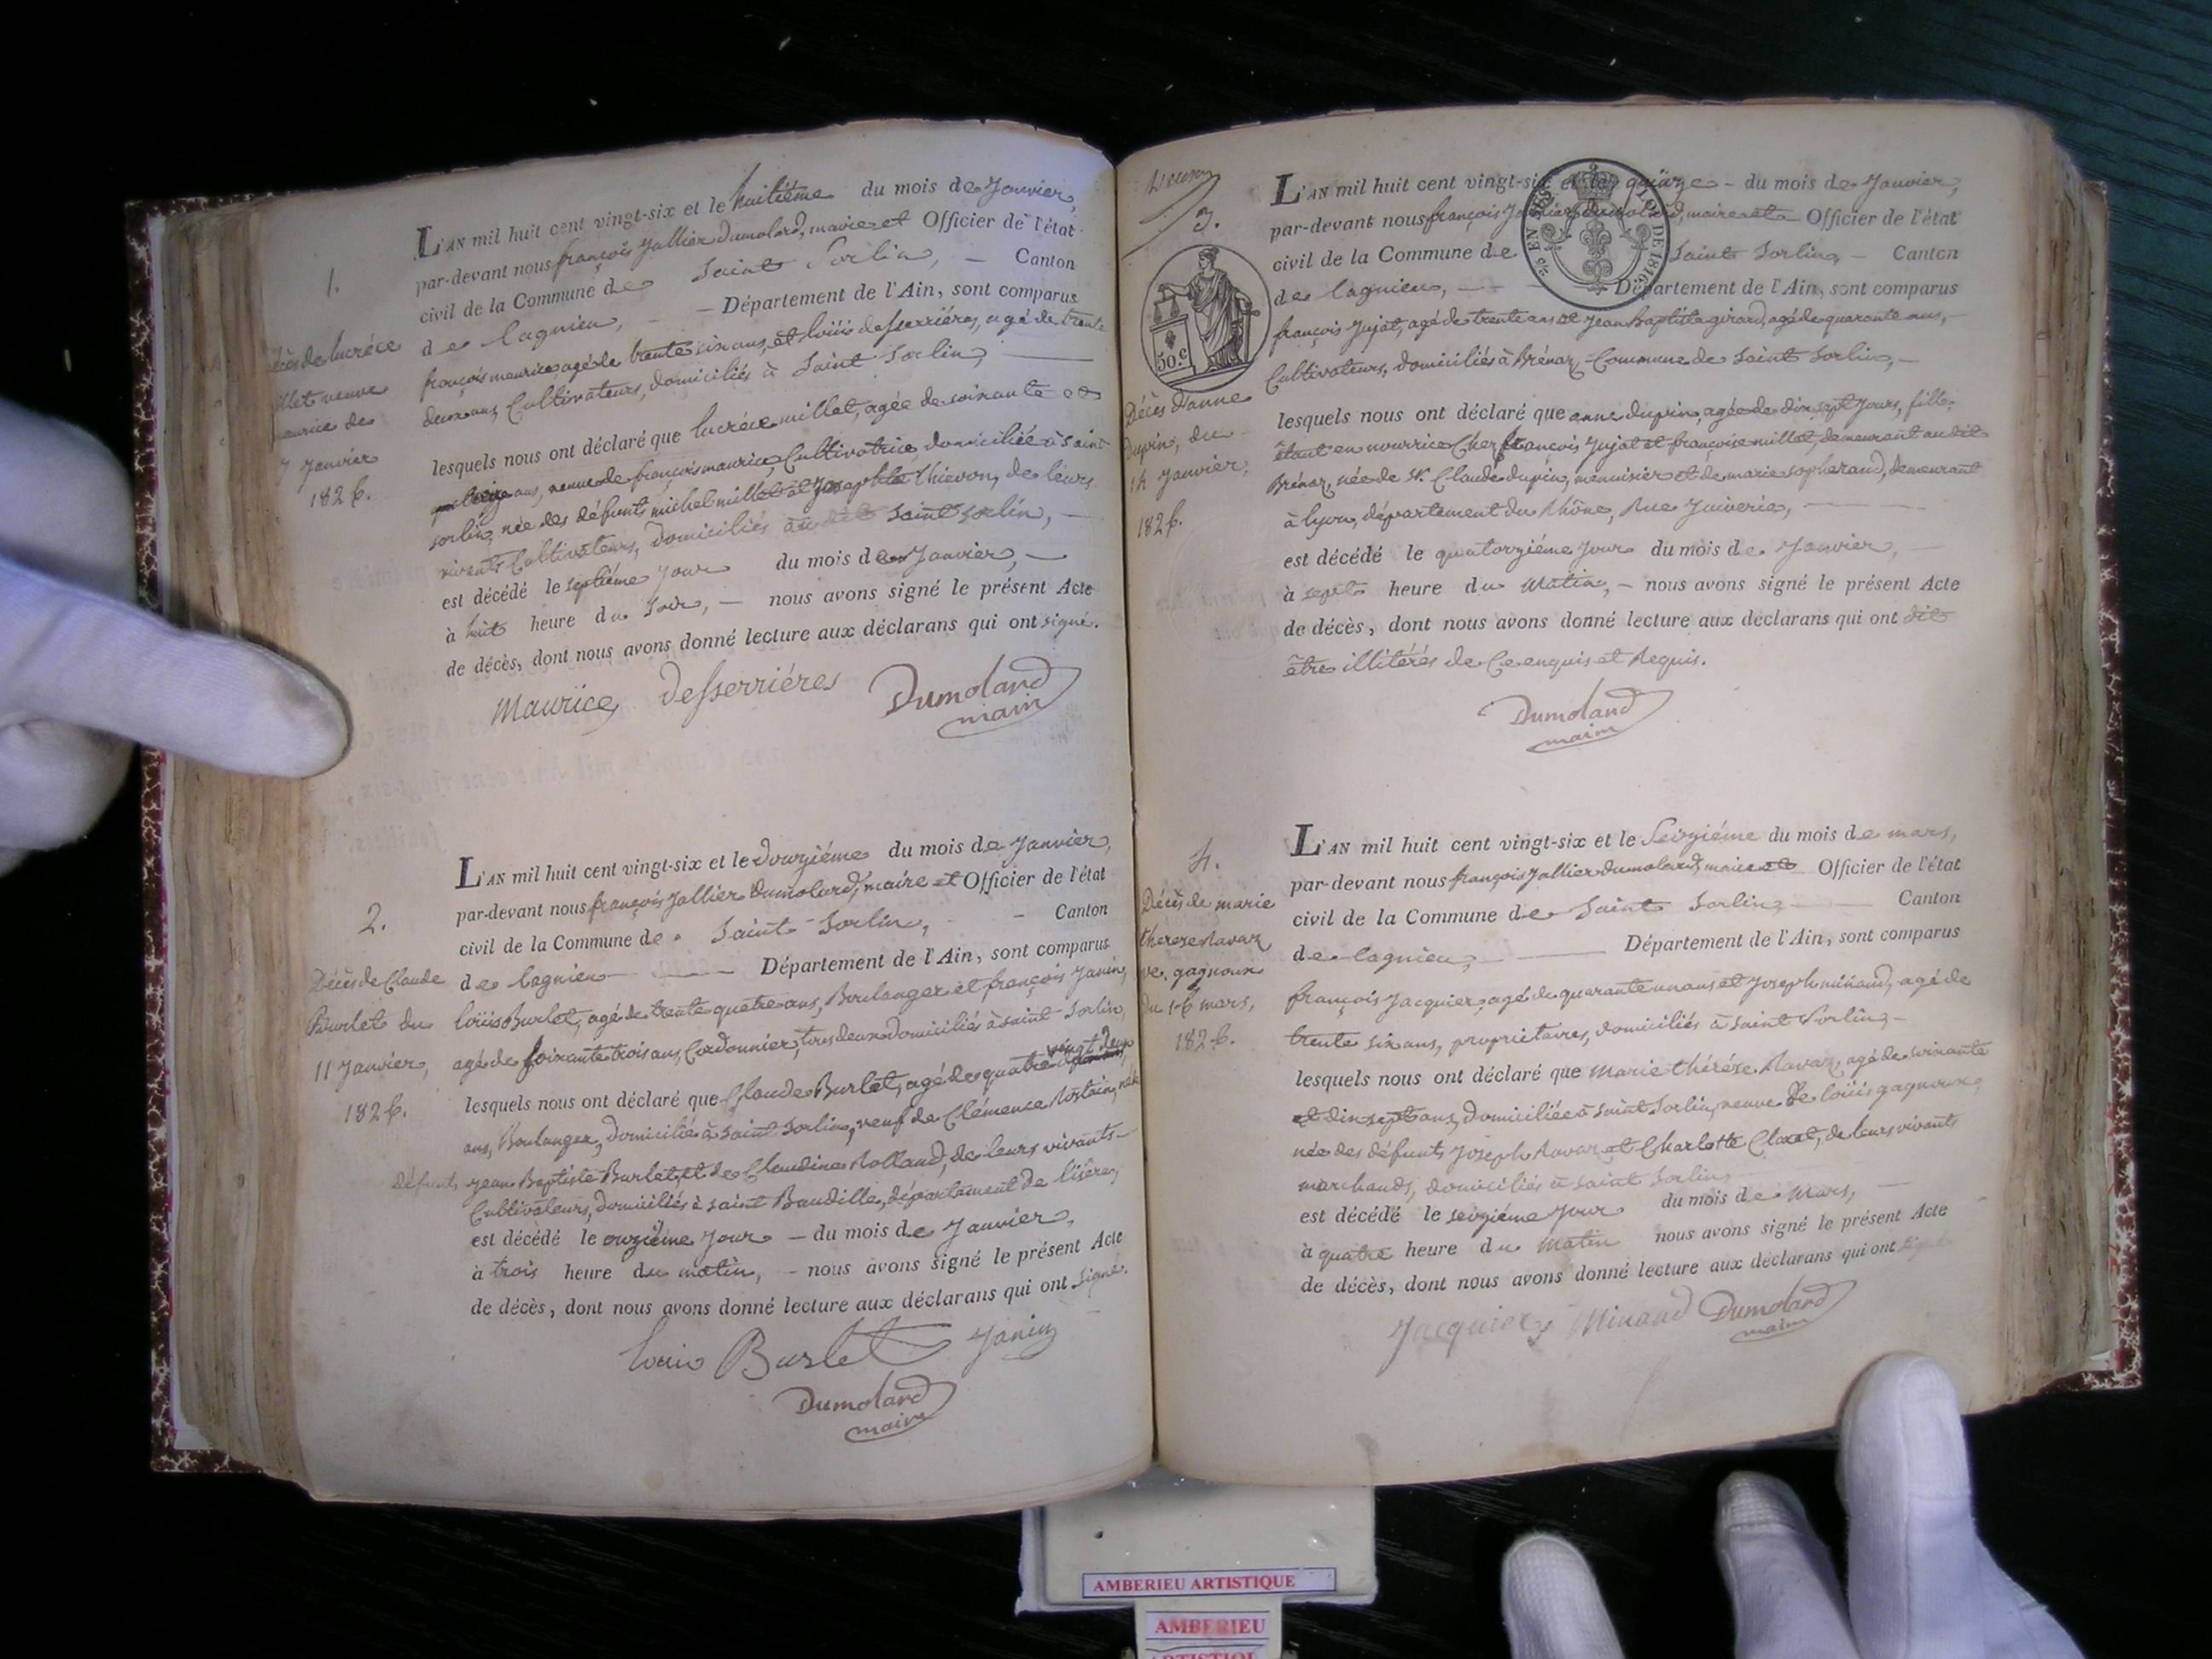 1.
Décès de lucréce
millet veuve
maurice du
7 Janvier
1826.
L'AN mil huit cent vingt-six et le huitiéme du mois de Janvier,
par-devant nous françois Jallier Dumolard, maire et Officier de l'état
civil de la Commune de Saint Sorlin, – Canton
de lagnieu, – Département de l'Ain, sont comparus
françois maurice agé de trente six ans, et loüis desserriéres, agé de trente
deux ans, Cultivateurs, domiciliés à Saint Sorlin,
lesquels nous ont déclaré que lucréce millet, agée de soixante et
seize ans, veuve de françois maurice, Cultivatrice, domiciliée à saint
sorlin, née des défunts michel millet et Josephte thievon, de leurs
vivants Cultivateurs, domiciliés au dit Saint Sorlin,
est décédé le septiéme Jour du mois de Janvier, –
à huit heure du Soir, – nous avons signé le présent Acte
de décès, dont nous avons donné lecture aux déclarans qui ont signé.
Maurice Desserriéres Dumolard
maire
2.
Décès de Claude
Burlet du
11 Janvier,
1826.
L'AN mil huit cent vingt-six et le douziéme du mois de Janvier,
par-devant nous françois Jallier Dumolard, maire et Officier de l'état
civil de la Commune de Saint Sorlin, – Canton
de lagnieu Département de l'Ain, sont comparus
loüis Burlet, agé de trente quatre ans, Boulanger et françois Janin,
agé de soixante trois ans, Cordonnier, tous deux domiciliés à saint Sorlin,
vingt deux
lesquels nous ont déclaré que Claude Burlet, agé de quatre
ans, Boulanger, domicilié à saint Sorlin, veuf de Clémence Rostain, né de
Défunts Jean Baptiste Burlet, et de Claudine Rolland, de leurs vivants
Cultivateurs, domiciliés à saint Baudille, département de l'isére,
est décédé le onziéme Jour – du mois de Janvier,
à trois heure du matin, – nous avons signé le présent Acte
de décès, dont nous avons donné lecture aux déclarans qui ont signé.
Louis Burlet Janin
Dumolard
maire
3.
EN SUS DE 1816
50.c
Décès d'anne
Dupin, du
14 Janvier,
1826.
L'AN mil huit cent vingt-six et le quinze – du mois de Janvier,
par-devant nous françois Jallier Dumolard, maire et – Officier de l'état
civil de la Commune de Saint Sorlin, – Canton
de lagnieu, – Département de l'Ain, sont comparus
françois Jujat, agé de trente ans et Jean Baptiste girard, agé de quarante ans, –
Cultivateurs, domiciliés à Brénaz, Commune de Saint Sorlin, –
lesquels nous ont déclaré que anne dupin, agée de dix sept Jours, fille
étant en nourrice Chez françois Jujat et françoise millet, demeurant au dit
Brénaz, née de Sr. Claude dupin, menuisier et de marie sopherand, demeurant
à lyon, département du Rhône, Rue Juiverie,
est décédé le quatorziéme Jour du mois de Janvier, –
à sept heure du Matin, – nous avons signé le présent Acte
de décès, dont nous avons donné lecture aux déclarans qui ont dit
être illitérés de Ce enquis et Requis.
Dumolard
maire
4.
Décès de marie
thereze Ravaz
ve. gagnoux
du 16 mars,
1826.
L'AN mil huit cent vingt-six et le Seiziéme du mois de mars,
par-devant nous françois Jallier dumolard, maire et Officier de l'état
civil de la Commune de Saint Sorlin, Canton
de lagnieu, Département de l'Ain, sont comparus
françois Jacquier, agé de quarante un ans et Joseph minand, agé de
trente six ans, proprietaires, domiciliés à Saint Sorlin, –
lesquels nous ont déclaré que Marie thérése Ravaz, agé de soixante
et dix sept ans, domiciliée à Saint Sorlin, veuve de loüis gagnoux,
née des défunts Joseph Ravaz et Charlotte Claret, de leurs vivants
marchands, domiciliés à saint Sorlin,
est décédé le seiziéme Jour du mois de Mars, –
à quatre heure du Matin nous avons signé le présent Acte
de décès, dont nous avons donné lecture aux déclarans qui ont signé
Jacquier Minand Dumolard
maire
AMBERIEU ARTISTIQUE
AMBERIEU
ARTISTIQUE